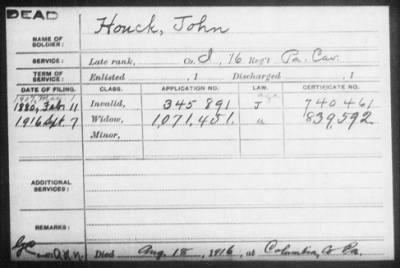 DEAD
NAME OF SOLDIER: Houck, John
SERVICE: Late rank, Co. I, 16 Reg't Pa. Cav.
TERM OF SERVICE: Enlisted , 1 Discharged , 1
DATE OF FILING. CLASS. APPLICATION NO. LAW. CERTIFICATE NO.
1880, Feb. 11 Invalid, 345891 J 740461
1916 Sept. 7 Widow, 1,071,451. 839,592
Minor,
ADDITIONAL SERVICES:
REMARKS:
Died Aug. 18, 1916, at Columbia, Pa.